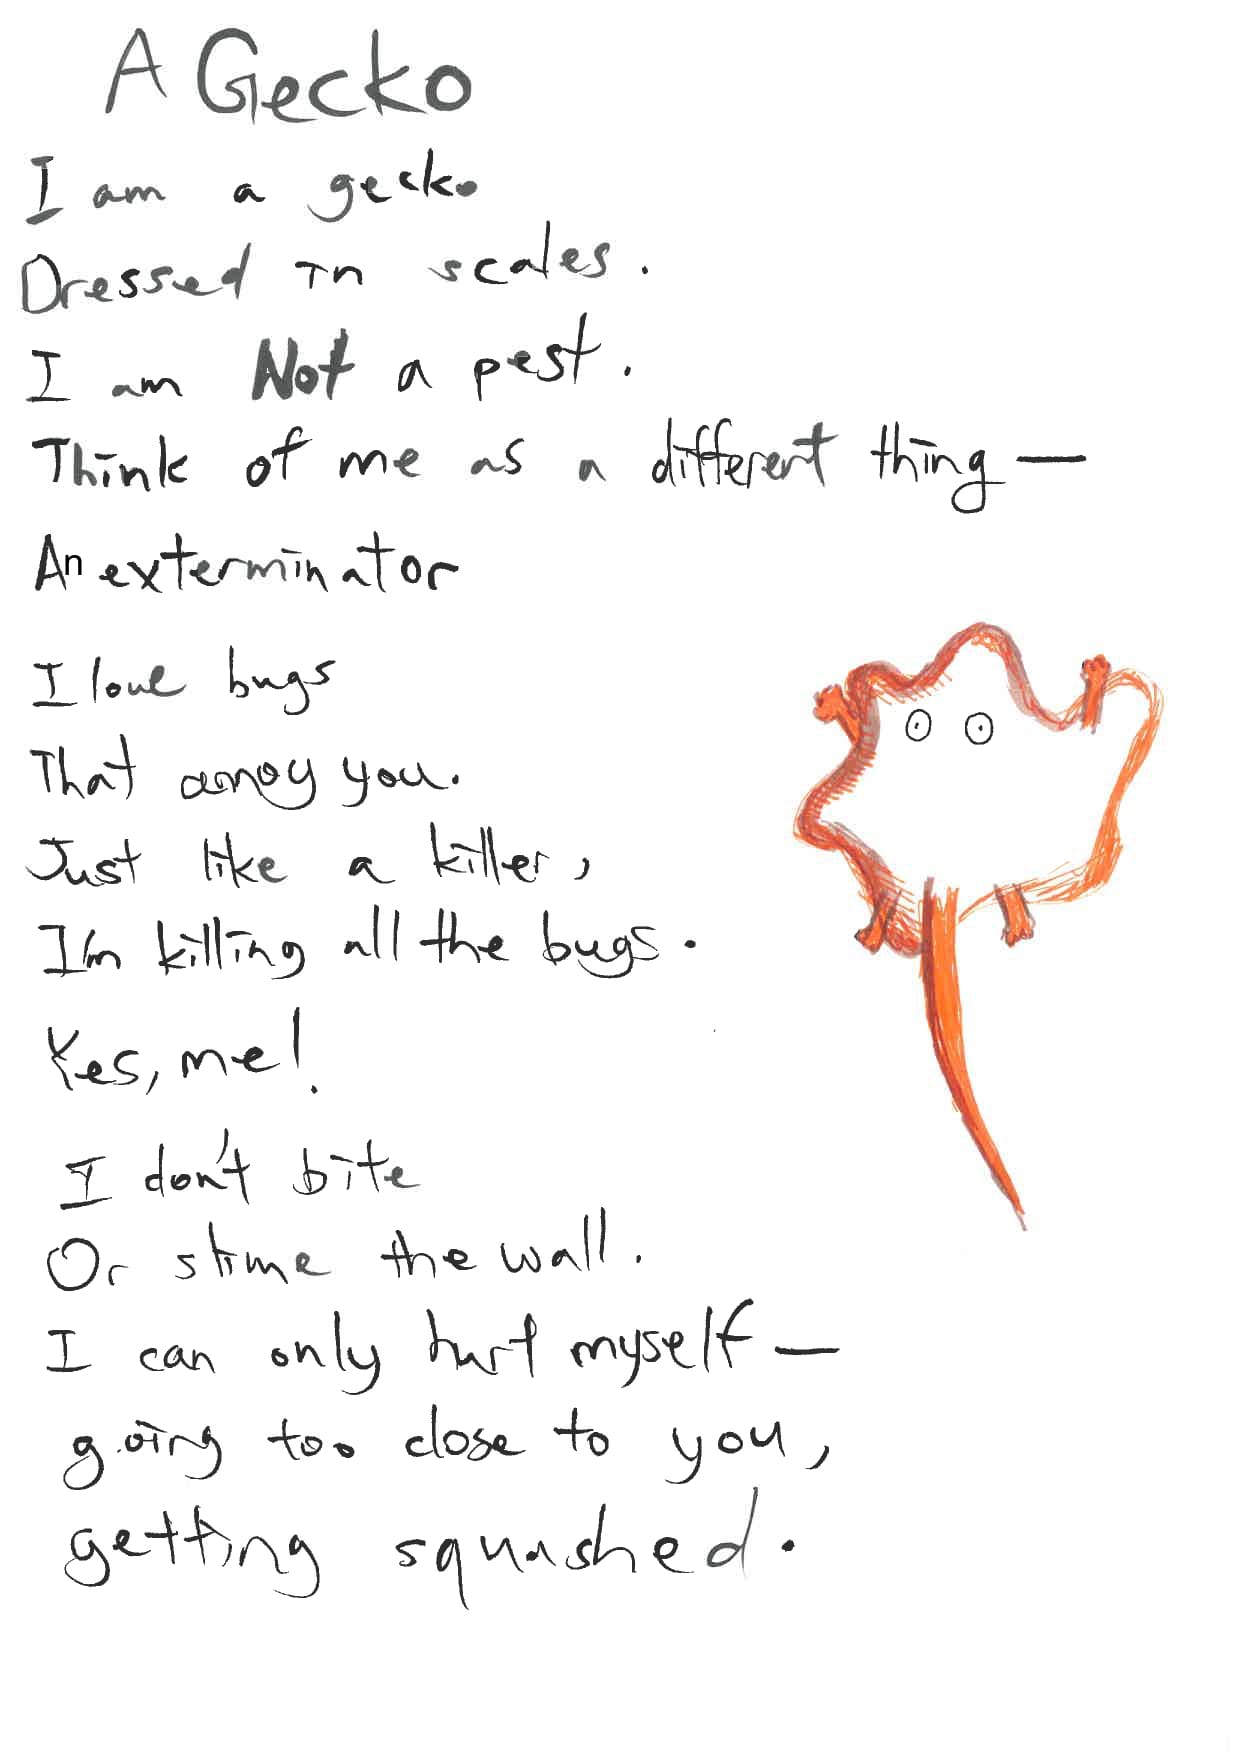 A Gecko
I am a gecko
Dressed in scales.
I am Not a pest.
Think of me as a different thing—
An exterminator
I love bugs
That annoy you.
Just like a killer,
I'm killing all the bugs.
Yes, me!
I don't bite
Or slime the wall.
I can only hurt myself—
going too close to you,
getting squashed.